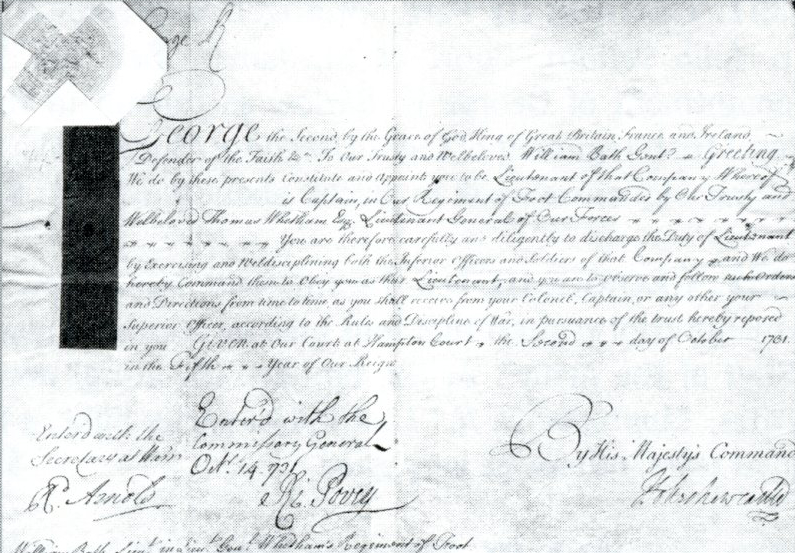 George R
George the Second, by the Grace of God, King of Great Britain, France and Ireland,
Defender of the Faith &c. To Our Trusty and Welbeloved William Bath Gent. Greeting.
We do by these presents Constitute and Appoint you to be Lieutenant of that Company Whereof
is Captain, in Our Regiment of Foot Commanded by Our Trusty and
Welbeloved Thomas Whetham Esq. Lieutenant General of Our Forces
You are therefore carefully and diligently to discharge the Duty of Lieutenant
by Exercising and Weldisciplining both the Inferior Officers and Soldiers of that Company and We do
hereby Command them to Obey you as their Lieutenant, and you are to observe and follow such Orders
and Directions from time to time, as you shall receive from your Colonel, Captain, or any other your
Superior Officer, according to the Rules and Discipline of War, in pursuance of the trust hereby reposed
in you Given at Our Court at Hampton Court the Second day of October 1731
in the Fifth Year of Our Reign
Enter'd with the
Commissary General
Oct. 14. 731
R. Povey
Enter'd with the
Secretary at Warr
Rd. Arnold
By His Majesty's Command
Holles Newcastle
William Bath Lieut. in Lieut. Genl. Whetham's Regiment of Foot